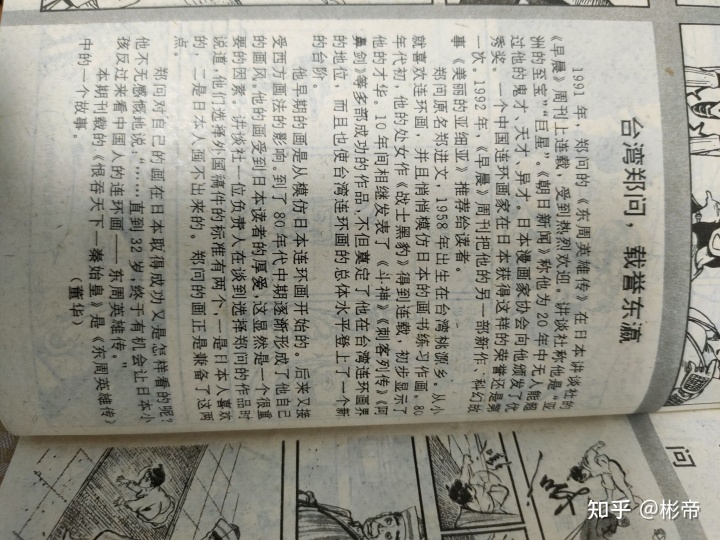 台湾郑问，载誉东瀛
1991年，郑问的《东周英雄传》在日本讲谈社的
《早晨》周刊上连载，受到热烈欢迎。讲谈社称他是“亚
洲的至宝”“巨星”。《朝日新闻》称他为20年中无人能超
过他的鬼才、天才、异才。日本漫画家协会向他颁发了优
秀奖。一个中国连环画家在日本获得这样的荣誉还是第
一次。1992年，《早晨》周刊把他的另一部新作、科幻故
事《美丽的亚细亚》推荐给读者。
郑问原名郑进文，1958年出生在台湾桃源乡。从小
就喜欢连环画，并且悄悄模仿日本的画书练习作画。80
年代初，他的处女作《战士黑豹》得到连载，初步显示了
他的才华。10年间相继发表了《斗神》《刺客列传》《阿
鼻剑》等多部成功的作品，不但奠定了他在台湾连环画界
的地位，而且也使台湾连环画的总体水平登上了一个新
的台阶。
他早期的画是从模仿日本连环画开始的。后来又接
受西方画法的影响。到了80年代中期逐渐形成了他自己
的画风。他的画受到日本读者的厚爱，这显然是一个很重
要的因素。讲谈社一位负责人在谈到选择郑问的作品时
说道，他们选择外国稿件的标准有两个，一是日本人喜欢
的，二是日本人画不出来的。郑问的画正是兼备了这两
点。
郑问对自己的画在日本取得成功又是怎样看的呢？
他不无感慨地说：“……直到32岁，终于有机会让日本小
孩反过来看中国人的连环画——东周英雄传。”
本期刊载的《恨吞天下—秦始皇》是《东周英雄传》
中的一个故事。
（董华）
问
知乎 @彬帝